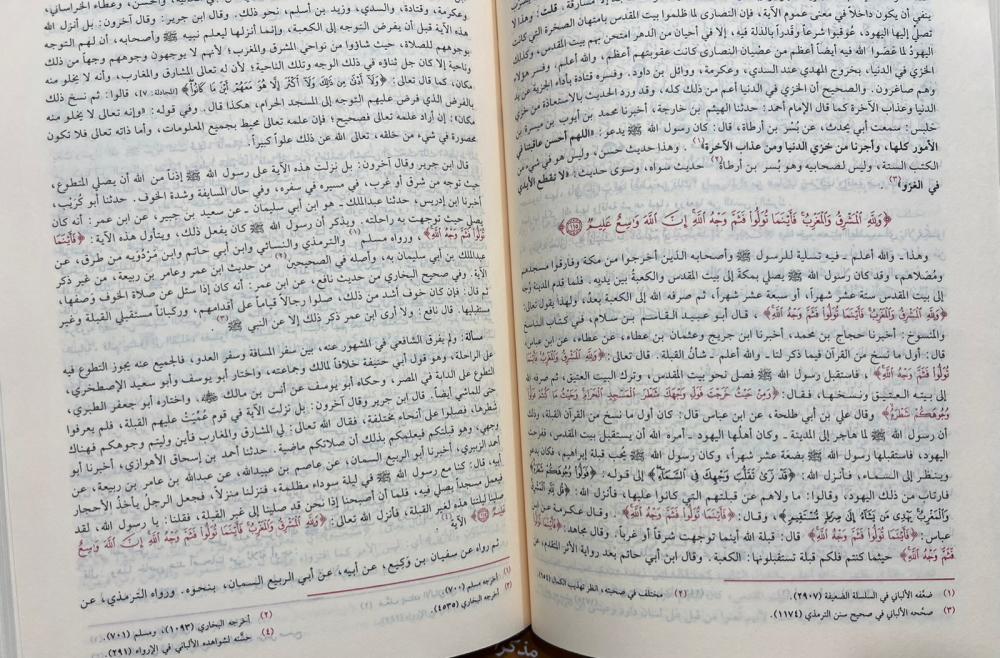 ينفي أن يكون داخلاً في معنى عموم الآية، فإن النصارى لما ظلموا بيت المقدس بامتهان الصخرة التي كانت
تصلي إليها اليهود، عُوقبوا شرعاً وقدراً بالذلة فيه، إلا في أحيان من الدهر امتحن بهم بيت المقدس، وكذلك
اليهود لما عصَوا الله فيه أيضاً أعظم من عصيان النصارى كانت عقوبتهم أعظم، والله أعلم. وفسر هؤلاء
الخزي في الدنيا، بخروج المهدي عند السدي، وعكرمة، ووائل بن داود. وفسره قتادة بأداء الجزية عن يد
وهم صاغرون. والصحيح أن الخزي في الدنيا أعم من ذلك كله، وقد ورد الحديث بالاستعاذة من خزي
الدنيا وعذاب الآخرة كما قال الإمام أحمد: حدثنا الهيثم بن خارجة، أخبرنا محمد بن أيوب بن ميسرة بن
حَلبَس: سمعت أبي يحدث، عن بُسْر بن أرطاة، قال: كان رسول الله ﷺ يدعو: «اللهم أحسن عاقبتنا في
الأمور كلها، وأجرنا من خزي الدنيا ومن عذاب الآخرة»(١). وهذا حديث حسن، وليس هو في شيء من
الكتب الستة، وليس لصحابيه وهو بسر بن أرطاة(٢) حديث سواه، وسوى حديث: «لا تقطع الأيدي
في الغزو»(٣)
﴿وَلِلَّهِ ٱلْمَشْرِقُ وَٱلْمَغْرِبُ فَأَيْنَمَا تُوَلُّوا۟ فَثَمَّ وَجْهُ ٱللَّهِ إِنَّ ٱللَّهَ وَٰسِعٌ عَلِيمٌ ﴿١١٥﴾﴾
وهذا ـ والله أعلم ـ فيه تسلية للرسول ﷺ وأصحابه الذين أخرجوا من مكة وفارقوا مسجدهم
ومُصَلاهم، وقد كان رسول الله ﷺ يصلي بمكة إلى بيت المقدس والكعبةُ بين يديه. فلما قدم المدينة وجه
إلى بيت المقدس ستة عشر شهراً، أو سبعة عشر شهراً، ثم صرفه الله إلى الكعبة بعدُ، ولهذا يقول تعالى:
﴿وَلِلَّهِ ٱلْمَشْرِقُ وَٱلْمَغْرِبُ فَأَيْنَمَا تُوَلُّوا۟ فَثَمَّ وَجْهُ ٱللَّهِ﴾، قال أبو عبيد القاسم بن سلام، في كتاب الناسخ
والمنسوخ: أخبرنا حجاج بن محمد، أخبرنا ابن جريج وعثمان بن عطاء، عن عطاء، عن ابن عباس
قال: أول ما نسخ من القرآن فيما ذكر لنا ـ والله أعلم ـ شأن القبلة. قال تعالى: ﴿وَلِلَّهِ ٱلْمَشْرِقُ وَٱلْمَغْرِبُ فَأَيْنَمَا
تُوَلُّوا۟ فَثَمَّ وَجْهُ ٱللَّهِ﴾، فاستقبل رسول الله ﷺ فصلى نحو بيت المقدس، وترك البيت العتيق، ثم صرفه الله
إلى بيته العتيق ونسخها، فقال: ﴿وَمِنْ حَيْثُ خَرَجْتَ فَوَلِّ وَجْهَكَ شَطْرَ ٱلْمَسْجِدِ ٱلْحَرَامِ وَحَيْثُ مَا كُنتُمْ فَوَلُّوا۟
وُجُوهَكُمْ شَطْرَهُ﴾ وقال علي بن أبي طلحة، عن ابن عباس قال: كان أول ما نسخ من القرآن القبلة، وذلك
أن رسول الله ﷺ لما هاجر إلى المدينة ـ وكان أهلها اليهود ـ أمره الله أن يستقبل بيت المقدس، ففرحت
اليهود، فاستقبلها رسول الله ﷺ بضعة عشر شهراً، وكان رسول الله ﷺ يحب قبلة إبراهيم، فكان يدعو
وينظر إلى السماء، فأنزل الله: ﴿قَدْ نَرَىٰ تَقَلُّبَ وَجْهِكَ فِى ٱلسَّمَآءِ﴾ إلى قوله: ﴿فَوَلُّوا۟ وُجُوهَكُمْ شَطْرَهُ﴾
فارتاب من ذلك اليهود، وقالوا: ما ولاهم عن قبلتهم التي كانوا عليها، فأنزل الله: ﴿قُل لِّلَّهِ ٱلْمَشْرِقُ
وَٱلْمَغْرِبُ يَهْدِى مَن يَشَآءُ إِلَىٰ صِرَٰطٍ مُّسْتَقِيمٍ﴾، وقال: ﴿فَأَيْنَمَا تُوَلُّوا۟ فَثَمَّ وَجْهُ ٱللَّهِ﴾. وقال عكرمة عن ابن
عباس: ﴿فَأَيْنَمَا تُوَلُّوا۟ فَثَمَّ وَجْهُ ٱللَّهِ﴾ قال: قبلة الله أينما توجهت شرقاً أو غرباً. وقال مجاهد: ﴿فَأَيْنَمَا تُوَلُّوا۟
فَثَمَّ وَجْهُ ٱللَّهِ﴾ حيثما كنتم فلكم قبلة تستقبلونها: الكعبة. وقال ابن أبي حاتم بعد رواية الأثر المتقدم، عن
(١) ضعّفه الألباني في السلسلة الضعيفة (٢٩٠٧). (٢) مختلف في صحبته، انظر تهذيب الكمال (٦٥٤).
(٣) صححه الألباني في صحيح سنن الترمذي (١١٧٤).
وعكرمة، وقتادة، والسدي، وزيد بن أسلم، نحو ذلك. وقال ابن جرير: وقال آخرون: بل أنزل الله
هذه الآية قبل أن يفرض التوجه إلى الكعبة، وإنما أنزلها ليعلم نبيه ﷺ وأصحابه، أن لهم التوجه
بوجوههم للصلاة، حيث شاؤوا من نواحي المشرق والمغرب؛ لأنهم لا يوجهون وجوههم وجهاً من ذلك
وناحية إلا كان جل ثناؤه في ذلك الوجه وتلك الناحية؛ لأن له تعالى المشارق والمغارب، وأنه لا يخلو منه
مكان، كما قال تعالى: ﴿وَلَآ أَدْنَىٰ مِن ذَٰلِكَ وَلَآ أَكْثَرَ إِلَّا هُوَ مَعَهُمْ أَيْنَ مَا كَانُوا۟﴾ [المجادلة: ٧]، قالوا: ثم نسخ ذلك
بالفرض الذي فرض عليهم التوجه إلى المسجد الحرام، هكذا قال. وفي قوله: «وإنه تعالى لا يخلو منه
مكان»: إن أراد علمه تعالى فصحيح؛ فإن علمه تعالى محيط بجميع المعلومات، وأما ذاته تعالى فلا تكون
محصورة في شيء من خلقه، تعالى الله عن ذلك علواً كبيراً.
قال ابن جرير وقال آخرون: بل نزلت هذه الآية على رسول الله ﷺ إذناً من الله أن يصلي المتطوع،
حيث توجه من شرق أو غرب، في مسيره في سفره، وفي حال المسايفة وشدة الخوف. حدثنا أبو كُرَيْب،
أخبرنا ابن إدريس، حدثنا عبدالملك ـ هو ابن أبي سليمان ـ عن سعيد بن جبير، عن ابن عمر: أنه كان
يصلي حيث توجهت به راحلته. ويذكر أن رسول الله ﷺ كان يفعل ذلك، ويتأول هذه الآية: ﴿فَأَيْنَمَا
تُوَلُّوا۟ فَثَمَّ وَجْهُ ٱللَّهِ﴾، ورواه مسلم(١) والترمذي والنسائي وابن أبي حاتم وابن مَرْدُوَيه من طرق، عن
عبدالملك بن أبي سليمان به، وأصله في الصحيحين(٢) من حديث ابن عمر وعامر بن ربيعة، من غير ذكر
الآية. وفي صحيح البخاري من حديث نافع، عن ابن عمر: أنه كان إذا سئل عن صلاة الخوف وصفها،
ثم قال: فإن كان خوف أشد من ذلك، صلوا رجالاً قياماً على أقدامهم، وركباناً مستقبلي القبلة وغير
مستقبلها. قال نافع: ولا أرى ابن عمر ذكر ذلك إلا عن النبي ﷺ(٣)
مسألة: ولم يفرق الشافعي في المشهور عنه، بين سفر المسافة وسفر العدو، فالجميع عنه يجوز التطوع فيه
على الراحلة، وهو قول أبي حنيفة خلافاً لمالك وجماعته، واختار أبو يوسف وأبو سعيد الإصطخري،
التطوع على الدابة في المصر، وحكاه أبو يوسف عن أنس بن مالك ﷺ، واختاره أبو جعفر الطبري،
حتى للماشي أيضاً. قال ابن جرير وقال آخرون: بل نزلت الآية في قوم عُمّيَت عليهم القبلة، فلم يعرفوا
شطرها، فصلوا على أنحاء مختلفة، فقال الله تعالى: لي المشارق والمغارب فأين وليتم وجوهكم فهناك
وجهي، وهو قبلتكم فيعلمكم بذلك أن صلاتكم ماضية. حدثنا أحمد بن إسحاق الأهوازي، أخبرنا أبو
أحمد الزبيري، أخبرنا أبو الربيع السمان؛ عن عاصم بن عبيدالله، عن عبدالله بن عامر بن ربيعة، عن
أبيه، قال: كنا مع رسول الله ﷺ في ليلة سوداء مظلمة، فنزلنا منزلاً، فجعل الرجلُ يأخذُ الأحجار
فيعمل مسجداً يصلي فيه، فلما أن أصبحنا إذا نحن قد صلينا إلى غير القبلة، فقلنا: يا رسول الله، لقد
صلينا ليلتنا هذه لغير القبلة، فأنزل الله تعالى: ﴿وَلِلَّهِ ٱلْمَشْرِقُ وَٱلْمَغْرِبُ فَأَيْنَمَا تُوَلُّوا۟ فَثَمَّ وَجْهُ ٱللَّهِ إِنَّ ٱللَّهَ وَٰسِعٌ
عَلِيمٌ ﴿١١٥﴾﴾ الآية(٤)
ثم رواه عن سفيان بن وَكِيع، عن أبيه، عن أبي الربيع السمان، بنحوه. ورواه الترمذي، عن
(١) أخرجه مسلم (٧٠٠). (٢) أخرجه البخاري (١٠٩٣)، ومسلم (٧٠١).
(٣) أخرجه البخاري (٤٥٣٥). (٤) حسّنه لشواهده الألباني في الإرواء (٢٩١).